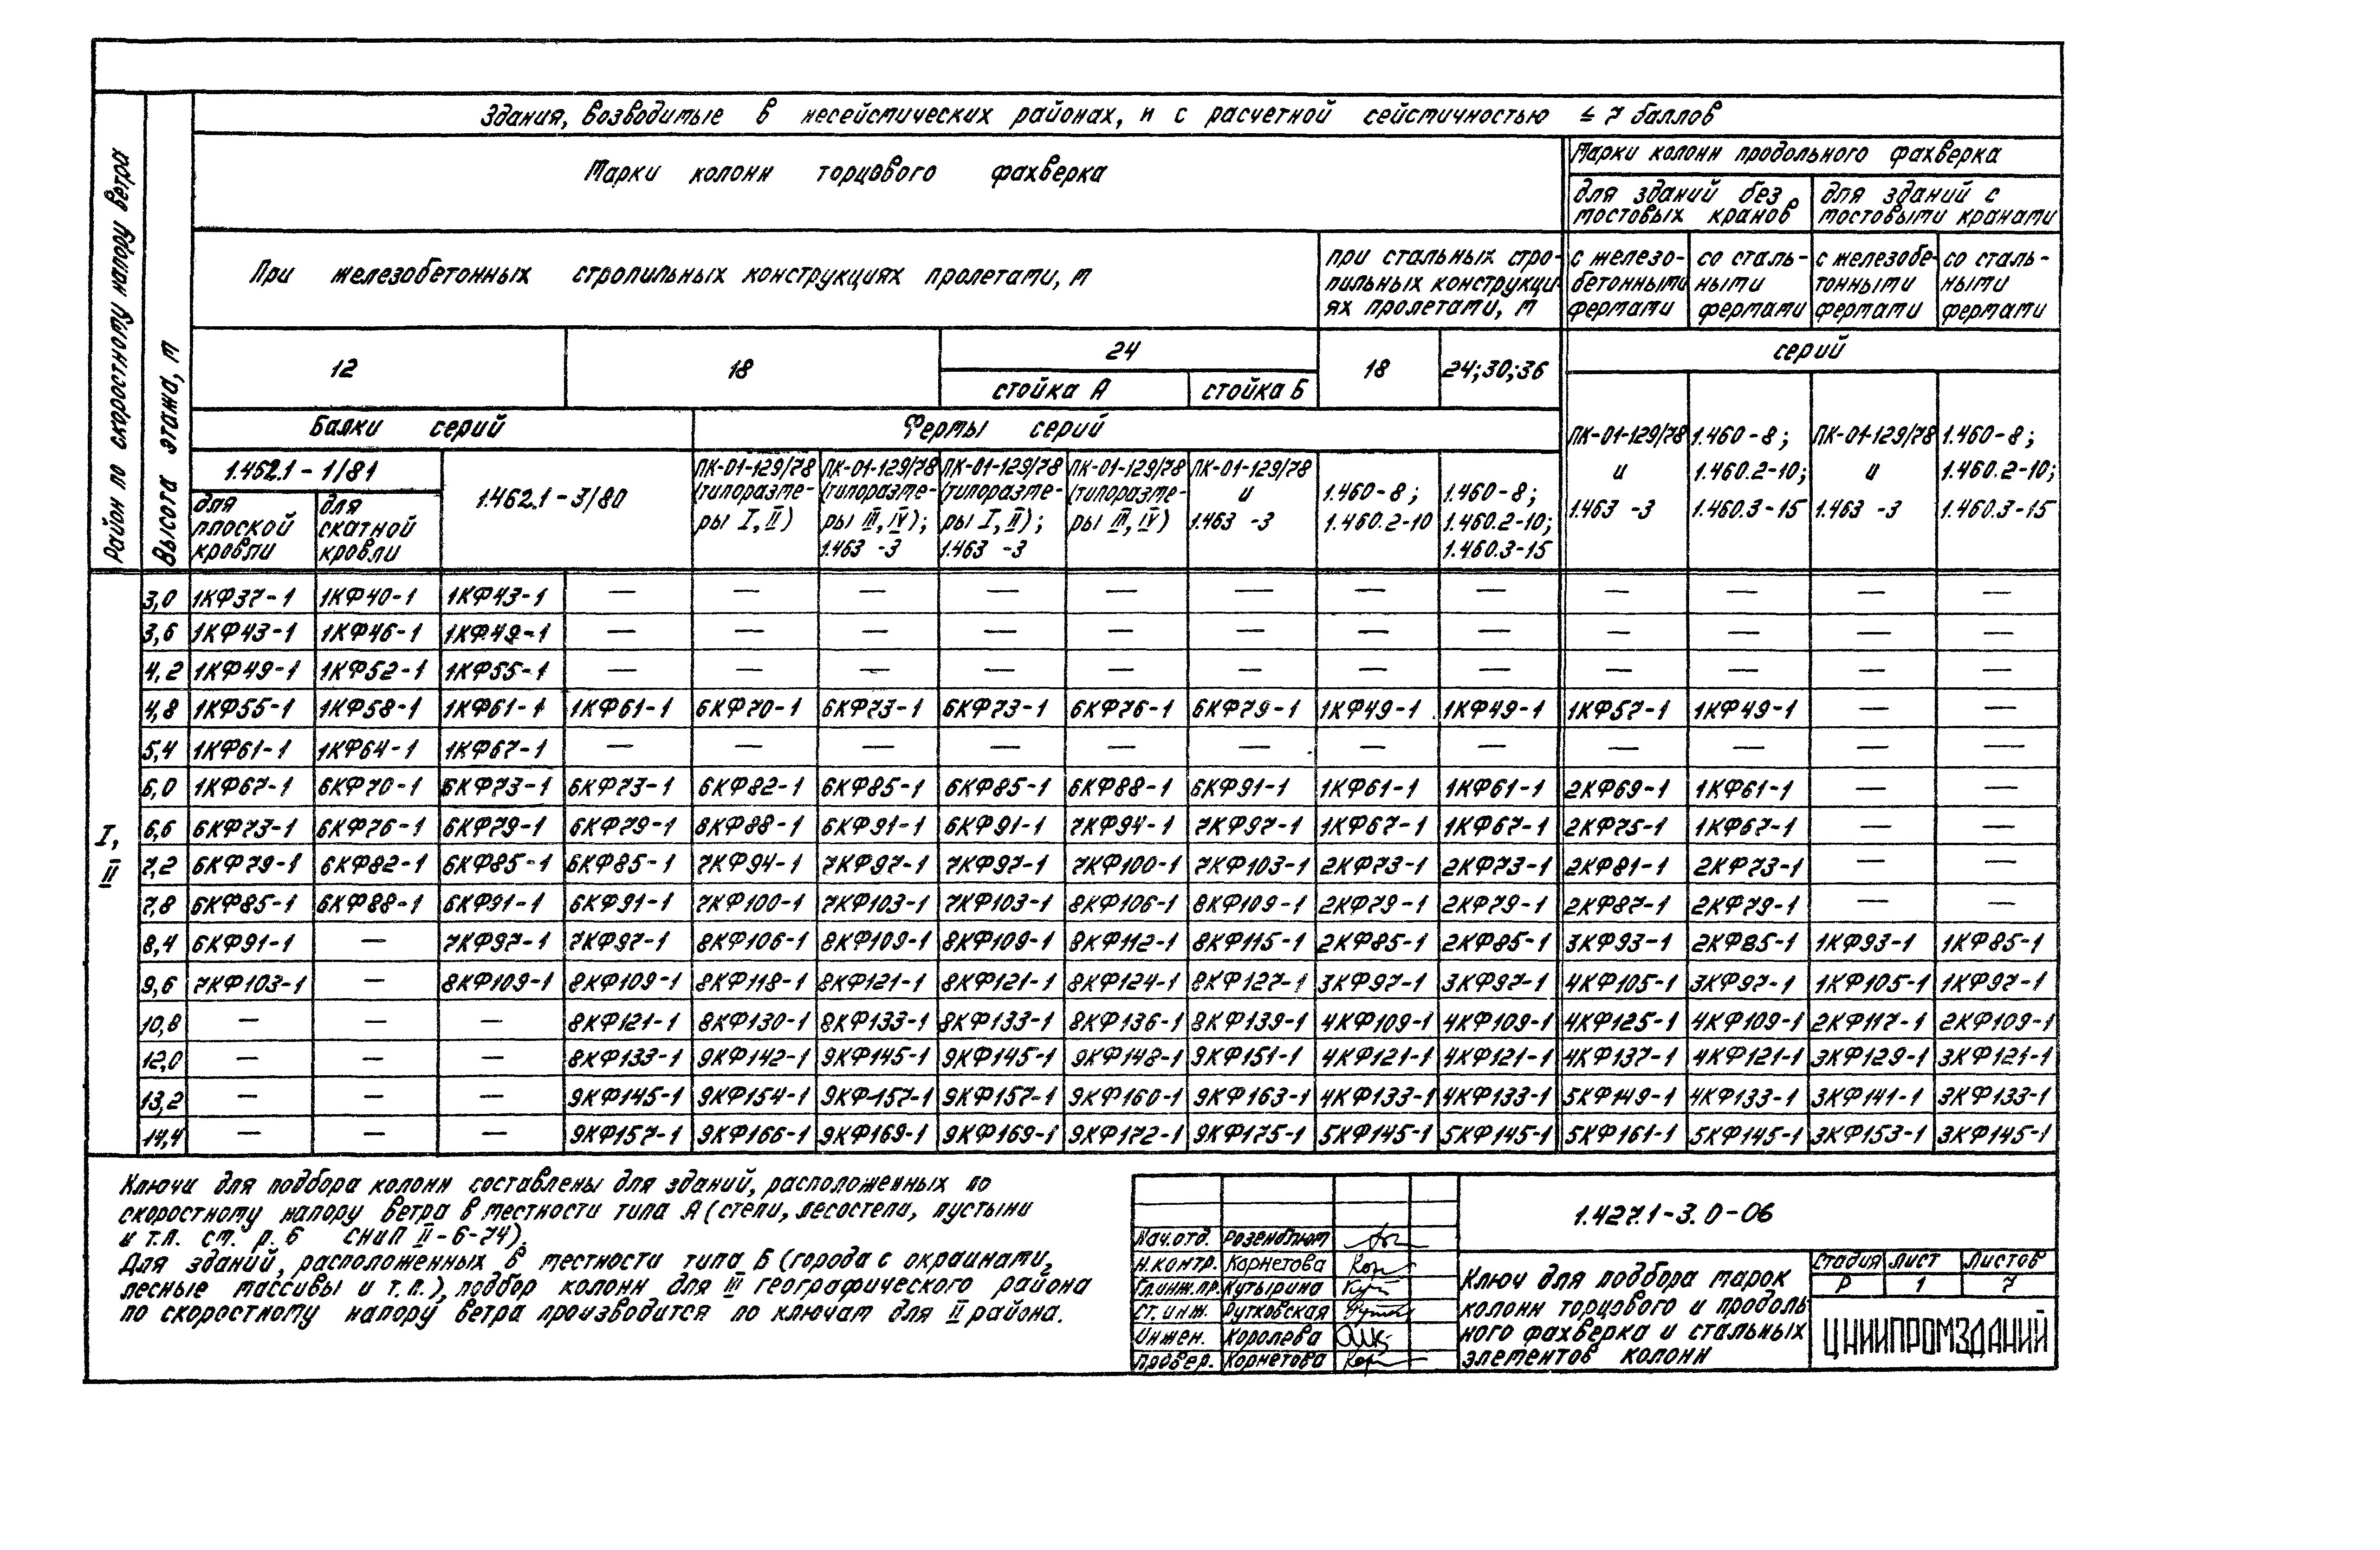 Здания, возводимые в несейсмических районах, и с расчетной сейсмичностью ≤ 7 баллов
Район по скоростному напору ветра
Высота этажа, м
Марки колонн торцового фахверка
Марки колонн продольного фахверка
для зданий без мостовых кранов
для зданий с мостовыми кранами
При железобетонных стропильных конструкциях пролетами, м
при стальных стро-
пильных конструкци-
ях пролетами, м
с железо-
бетонными
фермами
со сталь-
ными
фермами
с железобе-
тонными
фермами
со сталь-
ными
фермами
12 18 24 18 24;30;36 серий
стойка А стойка Б
Балки серий Фермы серий
1.462.1-1/81
для плоской кровли
для скатной кровли
1.462.1-3/80
ПК-01-129/78 (типоразме-ры I, II)
ПК-01-129/78 (типоразме-ры III, IV); 1.463 -3
ПК-01-129/78 (типоразме-ры I, II); 1.463 -3
ПК-01-129/78 (типоразме-ры III, IV)
ПК-01-129/78 и 1.463 -3
1.460-8; 1.460.2-10
1.460-8; 1.460.2-10; 1.460.3-15
ПК-01-129/78 и 1.463 -3
1.460-8; 1.460.2-10; 1.460.3-15
ПК-01-129/78 и 1.463 -3
1.460-8; 1.460.2-10; 1.460.3-15
I, II
3,0 1КФ37-1 1КФ40-1 1КФ43-1 — — — — — — — — — — — —
3,6 1КФ43-1 1КФ46-1 1КФ49-1 — — — — — — — — — — — —
4,2 1КФ49-1 1КФ52-1 1КФ55-1 — — — — — — — — — — — —
4,8 1КФ55-1 1КФ58-1 1КФ61-1 1КФ61-1 6КФ70-1 6КФ73-1 6КФ73-1 6КФ76-1 6КФ79-1 1КФ49-1 1КФ49-1 1КФ57-1 1КФ49-1 — —
5,4 1КФ61-1 1КФ64-1 1КФ67-1 — — — — — — — — — — — —
6,0 1КФ67-1 6КФ70-1 6КФ73-1 6КФ73-1 6КФ82-1 6КФ85-1 6КФ85-1 6КФ88-1 6КФ91-1 1КФ61-1 1КФ61-1 2КФ69-1 1КФ61-1 — —
6,6 6КФ73-1 6КФ76-1 6КФ79-1 6КФ79-1 8КФ88-1 6КФ91-1 6КФ91-1 7КФ94-1 7КФ97-1 1КФ67-1 1КФ67-1 2КФ75-1 1КФ67-1 — —
7,2 6КФ79-1 6КФ82-1 6КФ85-1 6КФ85-1 7КФ94-1 7КФ97-1 7КФ97-1 7КФ100-1 7КФ103-1 2КФ73-1 2КФ73-1 2КФ81-1 2КФ73-1 — —
7,8 6КФ85-1 6КФ88-1 6КФ91-1 6КФ91-1 7КФ100-1 7КФ103-1 7КФ103-1 8КФ106-1 8КФ109-1 2КФ79-1 2КФ79-1 2КФ87-1 2КФ79-1 — —
8,4 6КФ91-1 — 7КФ97-1 7КФ97-1 8КФ106-1 8КФ109-1 8КФ109-1 8КФ112-1 8КФ115-1 2КФ85-1 2КФ85-1 3КФ93-1 2КФ85-1 1КФ93-1 1КФ85-1
9,6 7КФ103-1 — 8КФ109-1 8КФ109-1 8КФ118-1 8КФ121-1 8КФ121-1 8КФ124-1 8КФ127-1 3КФ97-1 3КФ97-1 4КФ105-1 3КФ97-1 1КФ105-1 1КФ97-1
10,8 — — — 8КФ121-1 8КФ130-1 8КФ133-1 8КФ133-1 8КФ136-1 8КФ139-1 4КФ109-1 4КФ109-1 4КФ125-1 4КФ109-1 2КФ117-1 2КФ109-1
12,0 — — — 8КФ133-1 9КФ142-1 9КФ145-1 9КФ145-1 9КФ148-1 9КФ151-1 4КФ121-1 4КФ121-1 4КФ137-1 4КФ121-1 3КФ129-1 3КФ121-1
13,2 — — — 9КФ145-1 9КФ154-1 9КФ157-1 9КФ157-1 9КФ160-1 9КФ163-1 4КФ133-1 4КФ133-1 5КФ149-1 4КФ133-1 3КФ141-1 3КФ133-1
14,4 — — — 9КФ157-1 9КФ166-1 9КФ169-1 9КФ169-1 9КФ172-1 9КФ175-1 5КФ145-1 5КФ145-1 5КФ161-1 5КФ145-1 3КФ153-1 3КФ145-1
Ключи для подбора колонн составлены для зданий, расположенных по
скоростному напору ветра в местности типа А (степи, лесостепи, пустыни
и т.п. см. р. 6 СНиП II-6-74).
Для зданий, расположенных в местности типа Б (города с окраинами,
лесные массивы и т.п.), подбор колонн для III географического района
по скоростному напору ветра производится по ключам для II района.
Нач.отд. Розенблюм
Н.контр. Корнетова
Гл.инж.пр. Кутырина
Ст. инж. Рутковская
Инжен. Королева
Провер. Корнетова
1.427.1-3.0-06
Ключ для подбора марок
колонн торцового и продоль
ного фахверка и стальных
элементов колонн
Стадия Лист Листов
Р 1 7
ЦНИИПРОМЗДАНИЙ